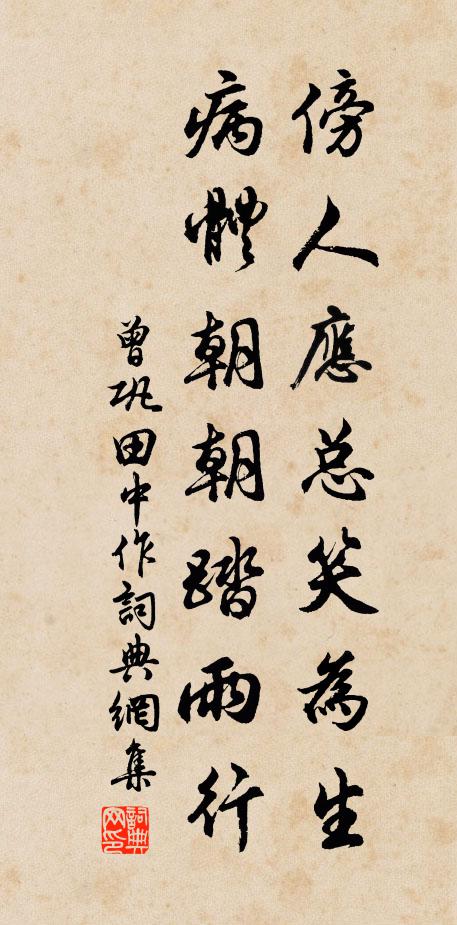 傍人應总笑為生
病體朝朝踏雨行
曾巩田中作詞典網集
詞典网印